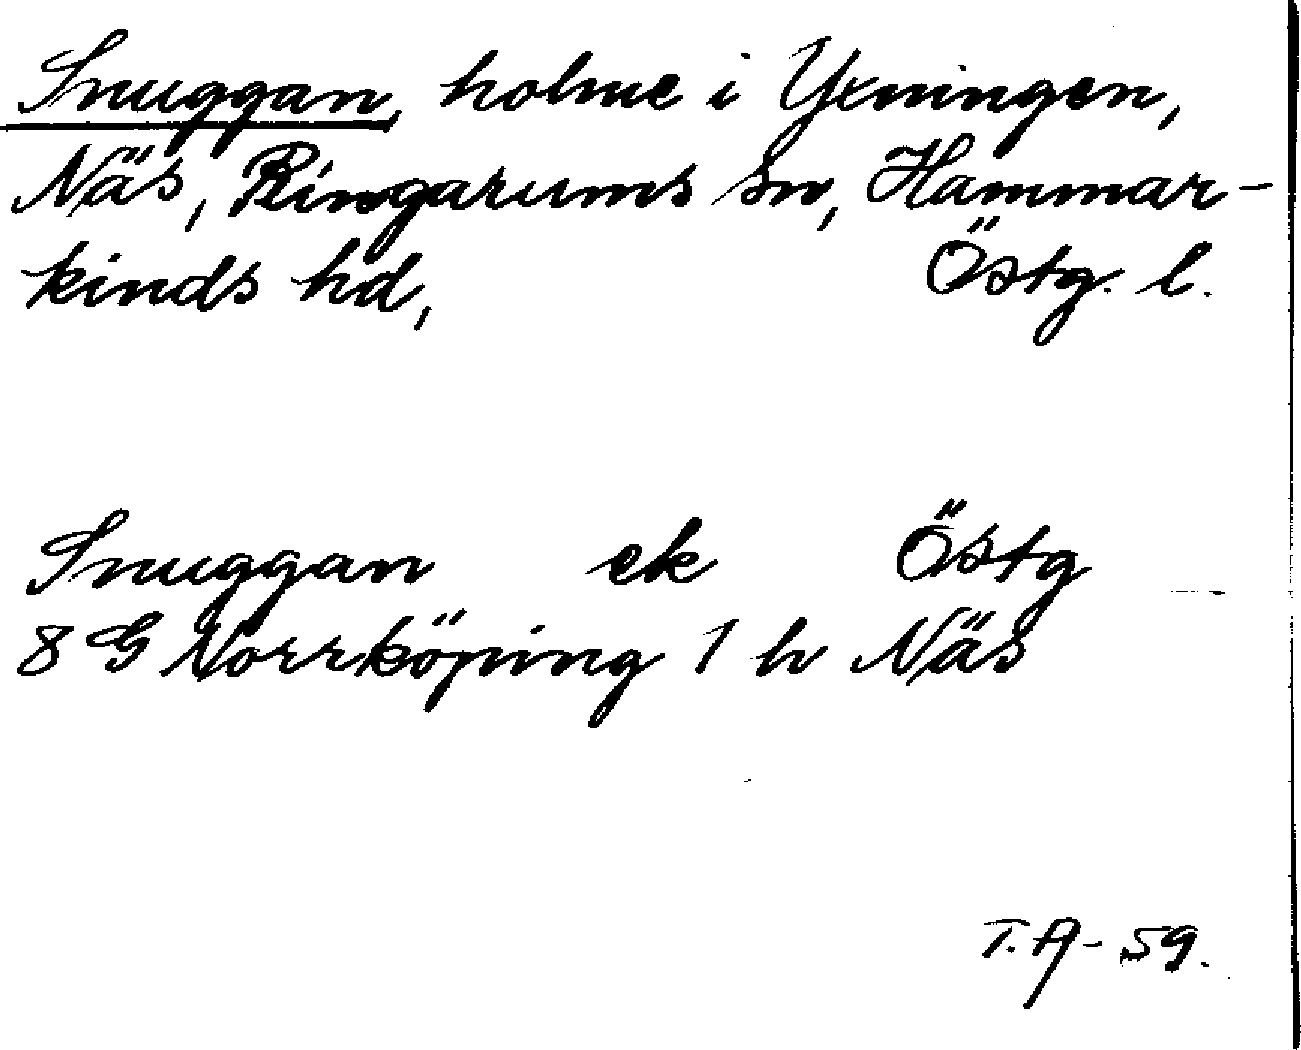 Snuggan, holme i Yxningen,
Näs, Ringarums sn, Hammar-
kinds hd, Östg. l.
Snuggan ek Östg
8 G Norrköping 1 h Näs
T. A - 59.